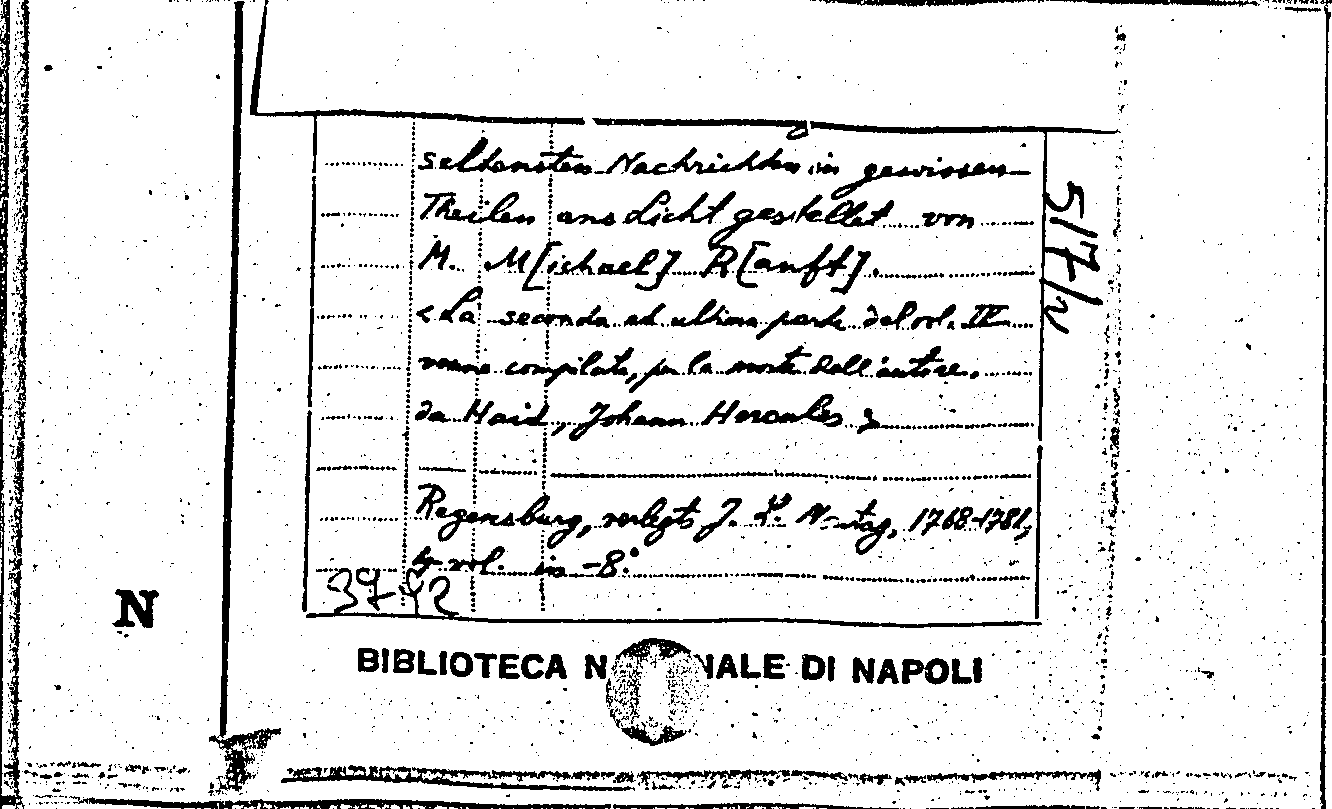 seltensten Nachrichten in gewissen
Theilen ans Licht gestellet von
M. M[ichael] R[anft].
<La seconda ed ultima parte del vol. IV
venne compilata, per la morte dell'autore,
da Haid, Johann Hercules>
Regensburg, verlegts J. L. 1768-1781,
4 vol. in -8.°
3792
517/2
N
BIBLIOTECA DI NAPOLI